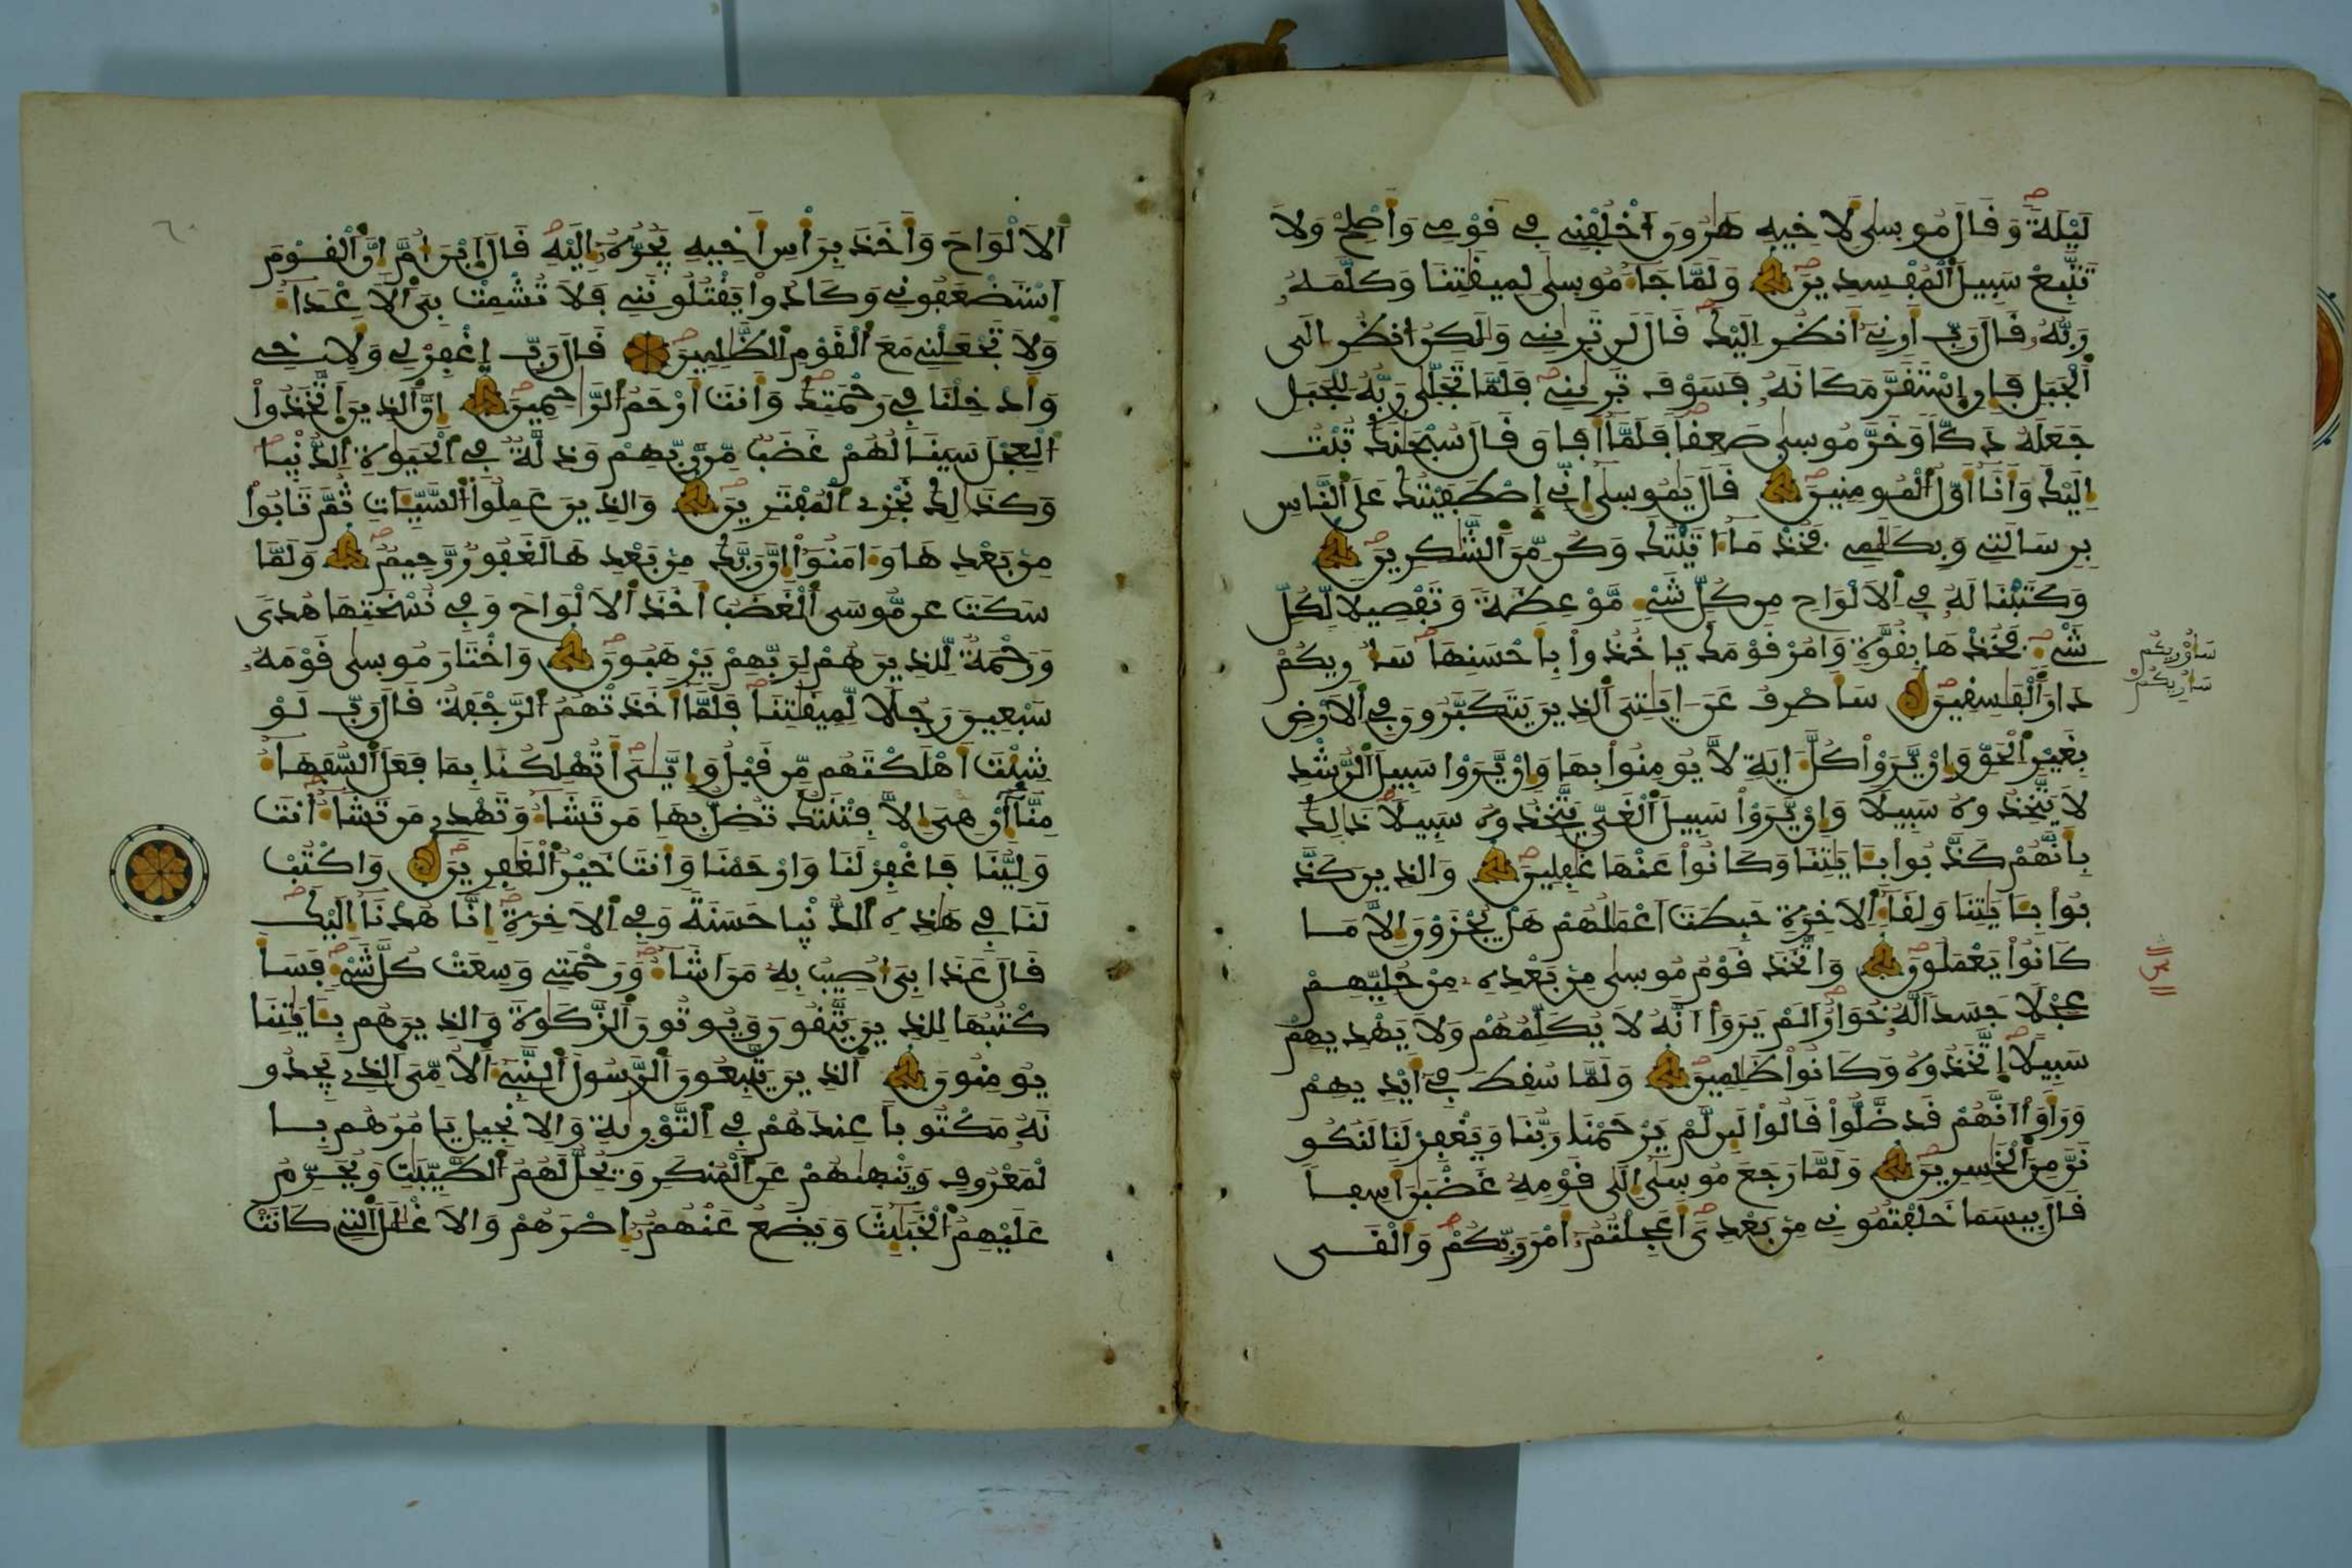 لَيْلَةً وَقَالَ مُوسىٰ لِأَخِيهِ هَٰرُونَ اَخْلُفْنِے فِے قَوْمِے وَأَصْلِحْ وَلَا
تَتَّبِعْ سَبِيلَ اَلْمُفْسِدِينَ وَلَمَّا جَآءَ مُوسىٰ لِمِيقَٰتِنَا وَكَلَّمَهُۥ
رَبُّهُۥ قَالَ رَبِّ أَرِنِے أَنظُرِ اِلَيْكَ قَالَ لَن تَرَىٰنِے وَلَٰكِنُ اُنظُرِ اِلَى
اَلْجَبَلِ فَإِنِ اِسْتَقَرَّ مَكَانَهُۥ فَسَوْفَ تَرَىٰنِے فَلَمَّا تَجَلَّىٰ رَبُّهُۥ لِلْجَبَلِ
جَعَلَهُۥ دَكّاً وَخَرَّ مُوسىٰ صَعِقاً فَلَمَّا أَفَاقَ قَالَ سُبْحَٰنَكَ تُبْتُ
إِلَيْكَ وَأَنَا أَوَّلُ اَلْمُومِنِينَ قَالَ يَٰمُوسىٰ إِنِّے اِصْطَفَيْتُكَ عَلَى اَلنَّاسِ
بِرِسَٰلَتِے وَبِكَلَٰمِے فَخُذْ مَا ءَاتَيْتُكَ وَكُن مِّنَ اَلشَّٰكِرِينَ
وَكَتَبْنَا لَهُۥ فِے اِلَالْوَاحِ مِن كُلِّ شَےْءٍ مَّوْعِظَةً وَتَفْصِيلاً لِّكُلِّ
شَےْءٍ فَخُذْهَا بِقُوَّةٍ وَامُرْ قَوْمَكَ يَاخُذُواْ بِأَحْسَنِهَا سَأُوْرِيكُمْ
دَارَ اَلْفَٰسِقِينَ سَأَصْرِفُ عَنَ اٰيَٰتِىَ اَلذِينَ يَتَكَبَّرُونَ فِے اِلَارْضِ
بِغَيْرِ اِلْحَقِّ وَإِنْ يَّرَوْاْ كُلَّ ءَايَةٍ لَّا يُومِنُواْ بِهَا وَإِنْ يَّرَوْاْ سَبِيلَ اَلرُّشْدِ
لَا يَتَّخِذُوهُ سَبِيلاً وَإِنْ يَّرَوْاْ سَبِيلَ اَلْغَىِّ يَتَّخِذُوهُ سَبِيلاً ذَٰلِكَ
بِأَنَّهُمْ كَذَّبُواْ بِـَٔايَٰتِنَا وَكَانُواْ عَنْهَا غَٰفِلِينَ وَالذِينَ كَذَّ
بُواْ بِـَٔايَٰتِنَا وَلِقَآءِ اِلَاخِرَةِ حَبِطَتَ اَعْمَٰلُهُمْ هَلْ يُجْزَوْنَ إِلَّا مَا
كَانُواْ يَعْمَلُونَ وَاتَّخَذَ قَوْمُ مُوسىٰ مِنۢ بَعْدِهِۦ مِنْ حُلِيِّهِمْ
عِجْلاً جَسَداً لَّهُۥ خُوَارٌ اَلَمْ يَرَوَاْ اَنَّهُۥ لَا يُكَلِّمُهُمْ وَلَا يَهْدِيهِمْ
سَبِيلاً اِتَّخَذُوهُ وَكَانُواْ ظَٰلِمِينَ وَلَمَّا سُقِطَ فِے أَيْدِيهِمْ
وَرَأَوَاْ اَنَّهُمْ قَد ضَّلُّواْ قَالُواْ لَئِن لَّمْ يَرْحَمْنَا رَبُّنَا وَيَغْفِرْ لَنَا لَنَكُو
نَنَّ مِنَ اَلْخَٰسِرِينَ وَلَمَّا رَجَعَ مُوسىٰ إِلَىٰ قَوْمِهِۦ غَضْبَٰنَ أَسِفاً
قَالَ بِيسَمَا خَلَفْتُمُونِے مِنۢ بَعْدِىَ أَعَجِلْتُمُۥ أَمْرَ رَبِّكُمْ وَأَلْقَى
سَأُوْرِيكُم
سَأُرِيكُمْ
اَلَالْوَاحَ وَأَخَذَ بِرَأْسِ أَخِيهِ يَجُرُّهُۥ إِلَيْهِ قَالَ اَبْنَ أُمَّ إِنَّ اَلْقَوْمَ
اَسْتَضْعَفُونِے وَكَادُواْ يَقْتُلُونَنِے فَلَا تُشْمِتْ بِىَ اَلَاعْدَآءَ
وَلَا تَجْعَلْنِے مَعَ اَلْقَوْمِ اِلظَّٰلِمِينَ قَالَ رَبِّ اِغْفِرْ لِے وَلِأَخِے
وَأَدْخِلْنَا فِے رَحْمَتِكَ وَأَنتَ أَرْحَمُ اُلرَّٰحِمِينَ إِنَّ اَلذِينَ اَتَّخَذُواْ
اُلْعِجْلَ سَيَنَالُهُمْ غَضَبٌ مِّن رَّبِّهِمْ وَذِلَّةٌ فِے اِلْحَيَوٰةِ اِلدُّنْيٰا
وَكَذَٰلِكَ نَجْزِے اِلْمُفْتَرِينَ وَالذِينَ عَمِلُواْ اُلسَّيِّـَٔاتِ ثُمَّ تَابُواْ
مِنۢ بَعْدِهَا وَءَامَنُواْ إِنَّ رَبَّكَ مِنۢ بَعْدِهَا لَغَفُورٌ رَّحِيمٌ وَلَمَّا
سَكَتَ عَن مُّوسَى اَلْغَضَبُ أَخَذَ اَلَالْوَاحَ وَفِے نُسْخَتِهَا هُدىً
وَرَحْمَةٌ لِّلذِينَ هُمْ لِرَبِّهِمْ يَرْهَبُونَ وَاخْتَارَ مُوسىٰ قَوْمَهُۥ
سَبْعِينَ رَجُلاً لِّمِيقَٰتِنَا فَلَمَّا أَخَذَتْهُمُ اُلرَّجْفَةُ قَالَ رَبِّ لَوْ
شِيئْتَ أَهْلَكْتَهُم مِّن قَبْلُ وَإِيَّٰىَ أَتُهْلِكُنَا بِمَا فَعَلَ اَلسُّفَهَآءُ
مِنَّا إِنْ هِىَ إِلَّا فِتْنَتُكَ تُضِلُّ بِهَا مَن تَشَآءُ وَتَهْدِے مَن تَشَآءُ أَنتَ
وَلِيُّنَا فَاغْفِرْ لَنَا وَارْحَمْنَا وَأَنتَ خَيْرُ اُلْغَٰفِرِينَ وَاكْتُبْ
لَنَا فِے هَٰذِهِ اِلدُّنْيٰا حَسَنَةً وَفِے اِلَاخِرَةِ إِنَّا هُدْنَا إِلَيْكَ
قَالَ عَذَابِىَ أُصِيبُ بِهِۦ مَنَ اَشَآءُ وَرَحْمَتِے وَسِعَتْ كُلَّ شَےْءٍ فَسَأَ
كْتُبُهَا لِلذِينَ يَتَّقُونَ وَيُوتُونَ اَلزَّكَوٰةَ وَالذِينَ هُم بِـَٔايَٰتِنَا
يُومِنُونَ اَلذِينَ يَتَّبِعُونَ اَلرَّسُولَ اَلنَّبِےءَ اَلُامِّىَّ اَلذِے يَجِدُو
نَهُۥ مَكْتُوباً عِندَهُمْ فِے اِلتَّوْرَىٰةِ وَالِانجِيلِ يَامُرُهُم بِا
لْمَعْرُوفِ وَيَنْهَىٰهُمْ عَنِ اِلْمُنكَرِ وَيُحِلُّ لَهُمُ اُلطَّيِّبَٰتِ وَيُحَرِّمُ
عَلَيْهِمُ اُلْخَبَٰئِثَ وَيَضَعُ عَنْهُمُۥ إِصْرَهُمْ وَالَاغْلَٰلَ اَلتِے كَانَتْ
٦٠